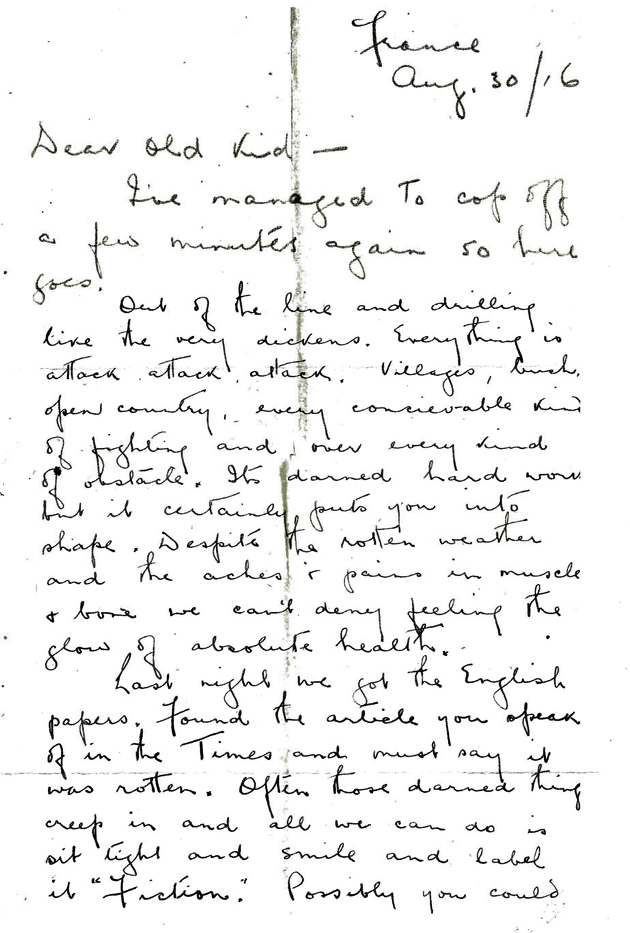 France
Aug. 30/16
Dear Old Kid —
I've managed to cop off
a few minutes again so here
goes.
Out of the line and drilling
like the very dickens. Everything is
attack attack attack. Villages, bush,
open country, every concievable kind
of fighting and over every kind
of obstacle. Its darned hard work
but it certainly puts you into
shape. Despite the rotten weather
and the aches & pains in muscle
& bone we can't deny feeling the
glow of absolute health.
Last night we got the English
papers. Found the article you speak
of in the Times and must say it
was rotten. Often those darned thing
creep in and all we can do is
sit tight and smile and label
it "Fiction." Possibly you could